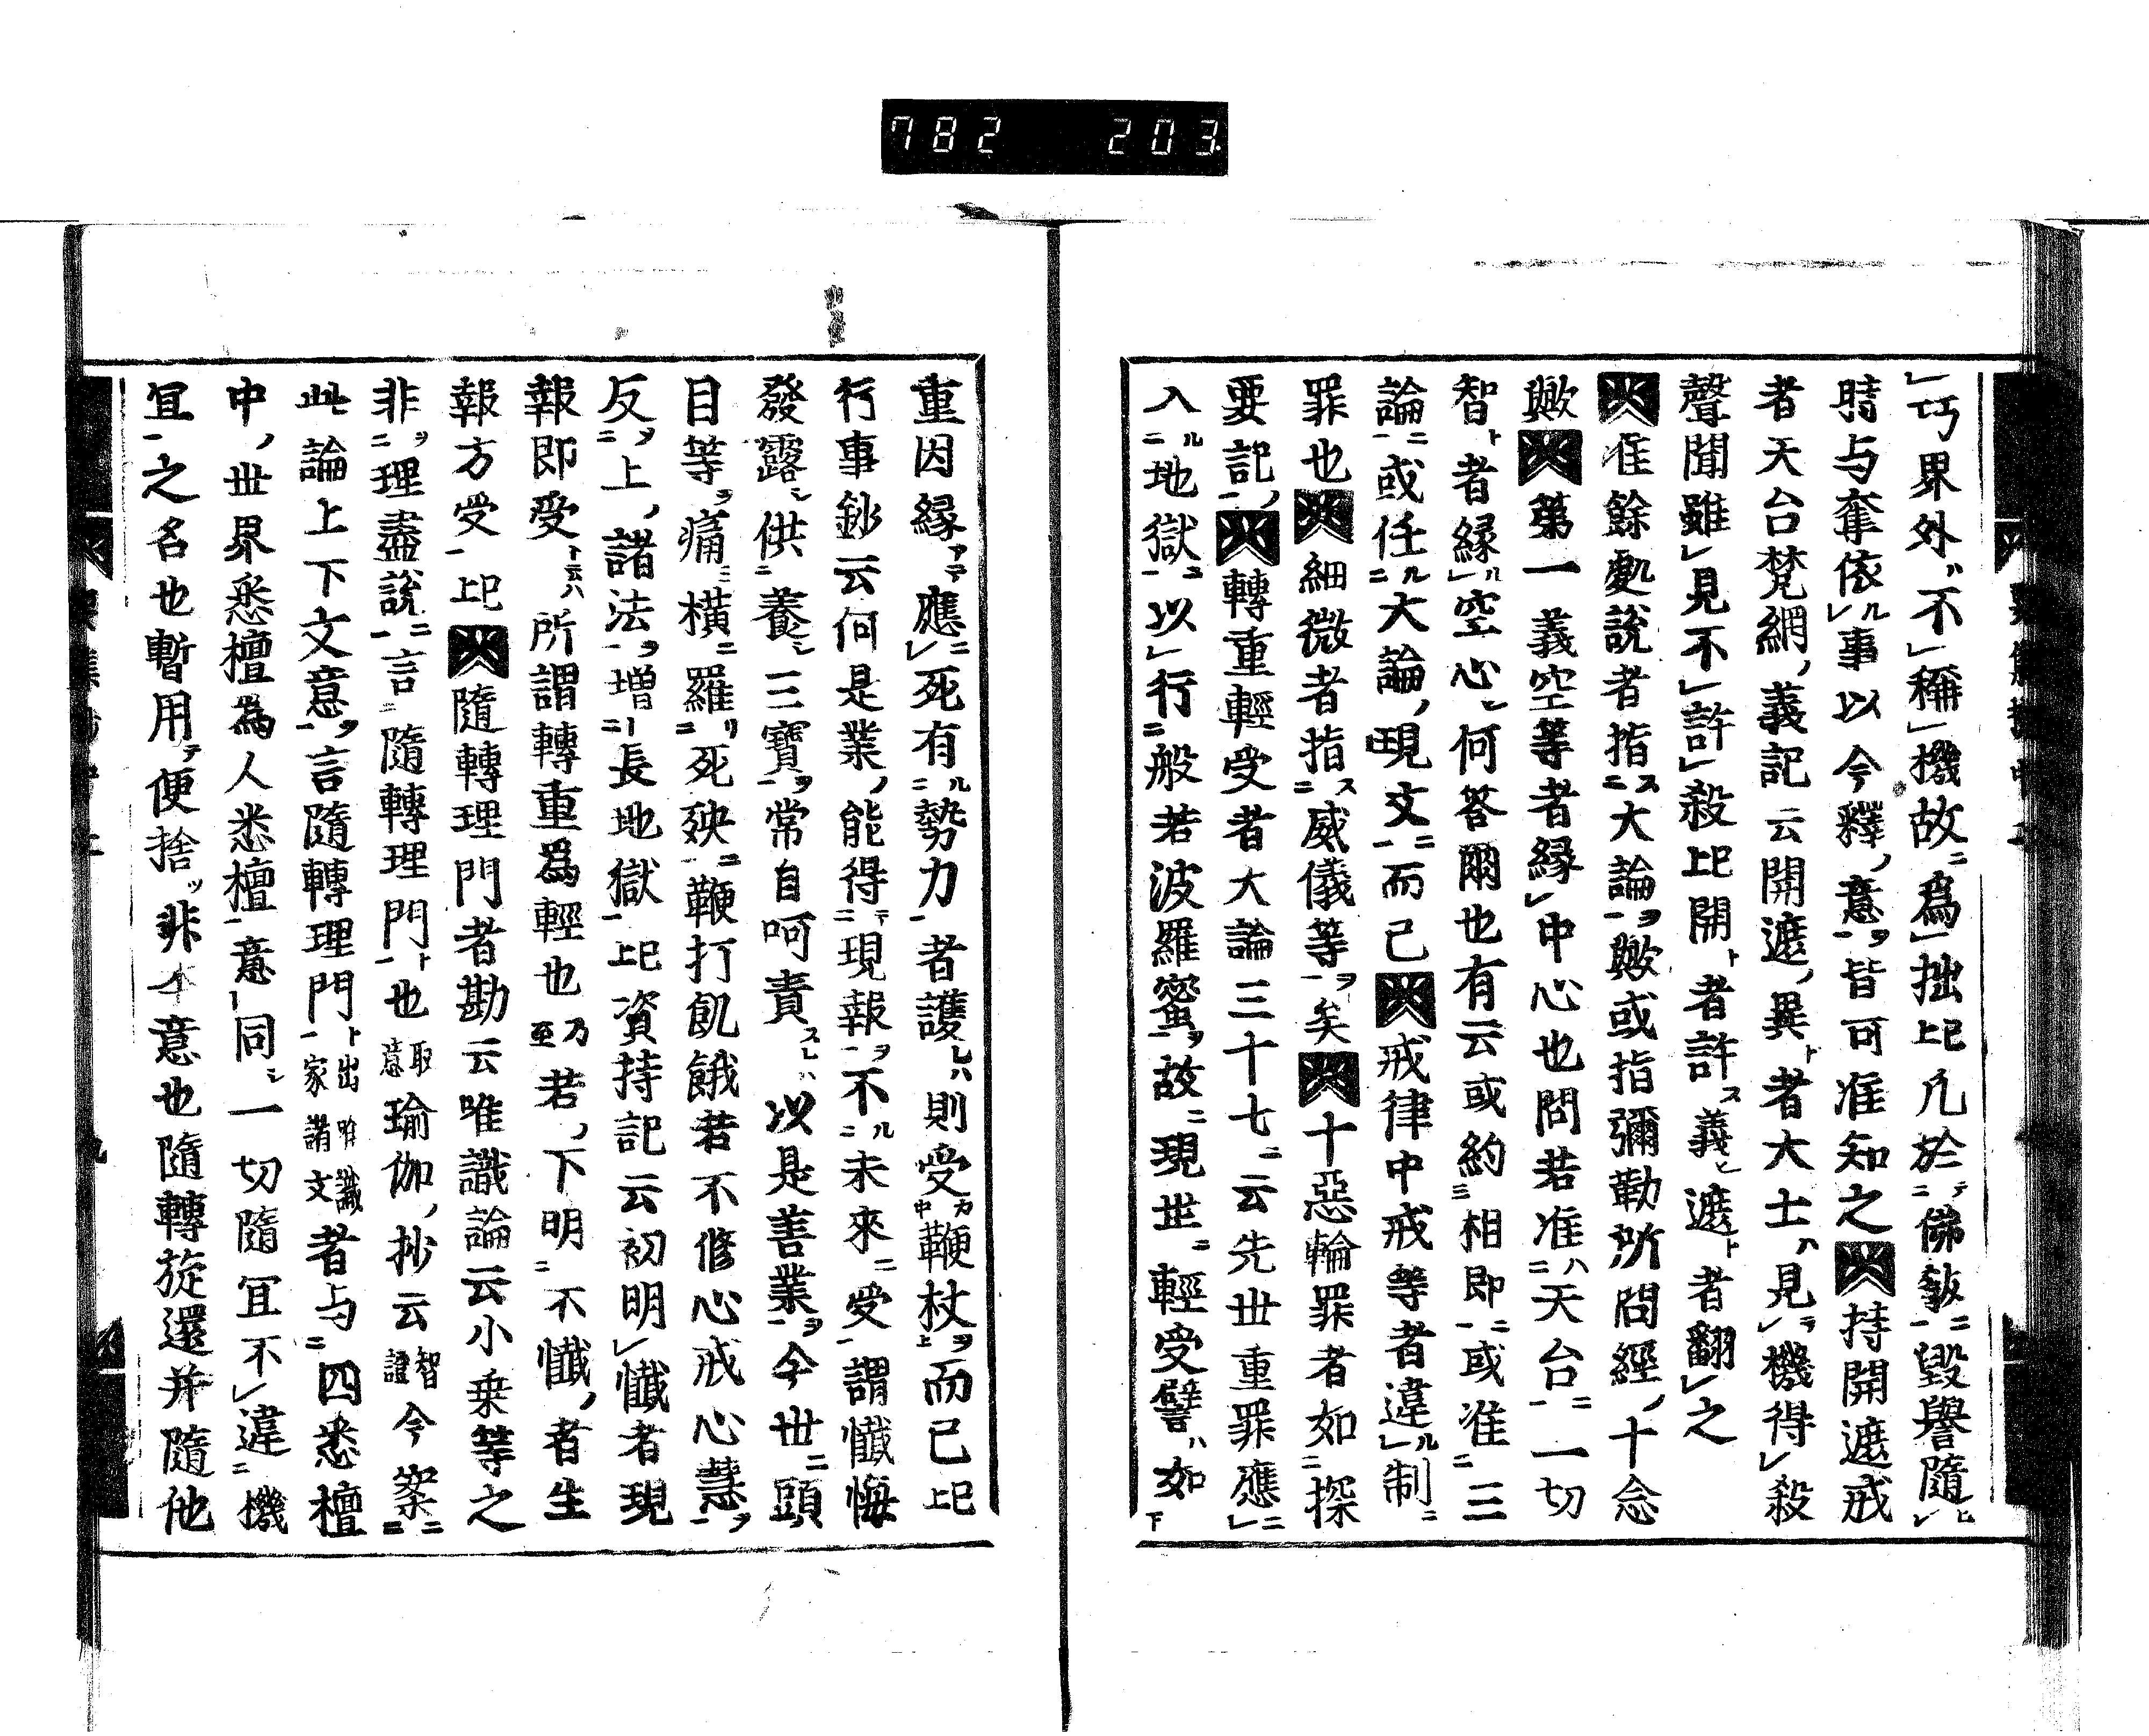 782 203
巧界外不稱機故爲拙已上凡於佛敎毀譽隨
時与奪依事以今釋意皆可准知之持開遮戒
者天台梵網義記云開遮異者大士見機得殺
聲聞雖見不許殺已上開者許義遮者翻之
准餘處說者指大論歟或指彌勒所問經十念
歟第一義空等者緣中心也問若准天台一切
智者緣空心何答爾也有云或約相即或准三
論或任大論現文而已戒律中戒等者違制
罪也細微者指威儀等矣十惡輪罪者如探
要記轉重輕受者大論三十七云先世重罪應
入地獄以行般若波羅蜜故現世輕受譬如
重因緣應死有勢力者護則受鞭杖而已已上
行事鈔云何是業能得現報不未來受謂懺悔
發露供養三寶常自呵責以是善業今世頭
目等痛橫羅死殃鞭打飢餓若不修心戒心慧
反上諸法增長地獄已上資持記云初明懺者現
報即受所謂轉重爲輕也乃至若下明不懺者生
報方受已上隨轉理門者勘云唯識論云小乘等之
非理盡說言隨轉理門也取意瑜伽抄云智證今案
此論上下文意言隨轉理門出唯識家諸文者与四悉檀
中世界悉檀爲人悉檀意同一切隨宜不違機
宜之名也暫用便捨非本意也隨轉旋還并隨他